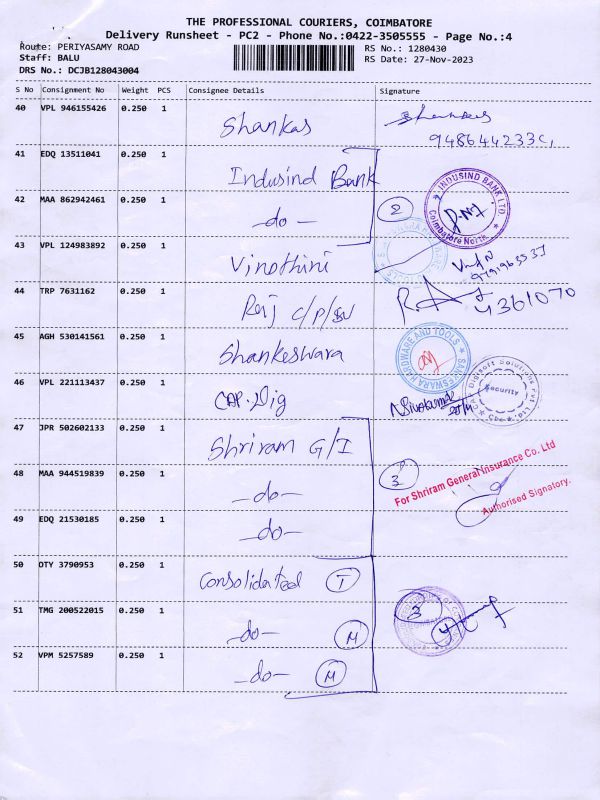 THE PROFESSIONAL COURIERS, COIMBATORE
Delivery Runsheet - PC2 - Phone No.:0422-3505555 - Page No.:4
Route: PERIYASAMY ROAD
RS No.: 1280430
Staff: BALU
RS Date: 27-Nov-2023
DRS No.: DCJB128043004
S No Consignment No Weight PCS Consignee Details Signature
40 VPL 946155426 0.250 1 Shankar
41 EDQ 13511041 0.250 1 Indusind Bank
42 MAA 862942461 0.250 1 -do- 2
INDUSIND BANK LTD.
Coimbatore North
43 VPL 124983892 0.250 1 Vinothini
44 TRP 7631162 0.250 1 Raj C/P/
4361070
45 AGH 530141561 0.250 1 Shankeswara
HARDWARE AND TOOLS
46 VPL 221113437 0.250 1 CAP Dig
Digisoft Solutions
Security
47 JPR 502602133 0.250 1 Shriram G/I
For Shriram General Insurance Co. Ltd
48 MAA 944519839 0.250 1 -do- 3
Authorised Signatory.
49 EDQ 21530185 0.250 1 -do-
50 OTY 3790953 0.250 1 Consolidated T
51 TMG 200522015 0.250 1 -do- M 3
52 VPM 5257589 0.250 1 -do- M